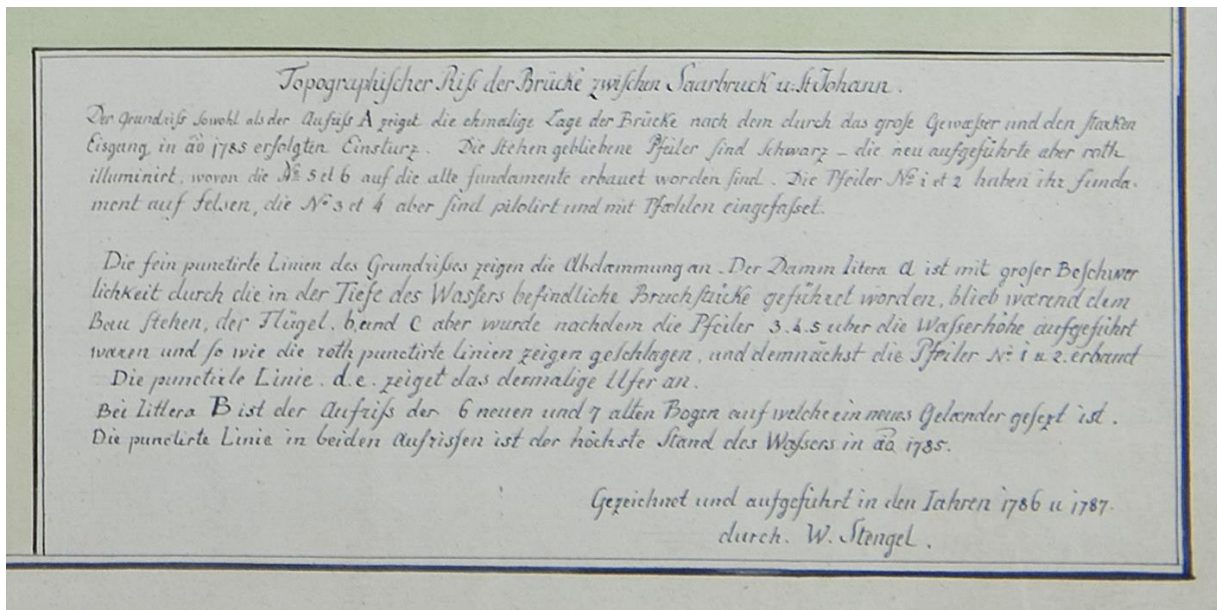 Topographiſcher Riſs der Brücke zwiſchen Saarbruck u. St Johann.
Der Grundriſs sowohl als der Aufriſs A zeiget die ehmalige Lage der Brücke nach dem durch das groſe Gewæſser und den ſtarken
Eisgang in aõ 1785 erfolgten Einsturz. Die ſtehen gebliebene Pfeiler ſind ſchwarz – die neu aufgeführte aber roth
illuminirt, wovon die No 5 et 6 auf die alte fundamente erbauet worden ſind. Die Pfeiler No 1 et 2 haben ihr funda-
ment auf Felsen, die No 3 et 4 aber ſind pilotirt und mit Pfæhlen eingefaſset.
Die fein punctirte Linien des Grundriſses zeigen die Abdæmmung an. Der Damm litera a ist mit groſer Beſchwer
lichkeit durch die in der Tiefe des Waſsers befindliche Bruchſtücke geführet worden, blieb wærend dem
Bau ſtehen, der Flügel. b. und c aber wurde nachdem die Pfeiler 3. 4. 5 uber die Waſserhöhe aufgeführt
waren und ſo wie die roth punctirte linien zeigen geſchlagen, und demnächst die Pfeiler No 1 u 2. erbaut
Die punctirte Linie. d. e. zeiget das dermalige Ufer an.
Bei Littera B ist der Aufriſs der 6 neuen und 7 alten Bogen auf welche ein neues Gelænder geſezt ist.
Die punctirte Linie in beiden Aufriſsen ist der höchste Stand des Waſsers in aõ 1785.
Gezeichnet und aufgeführt in den Iahren 1786 u 1787.
durch. W. Stengel.